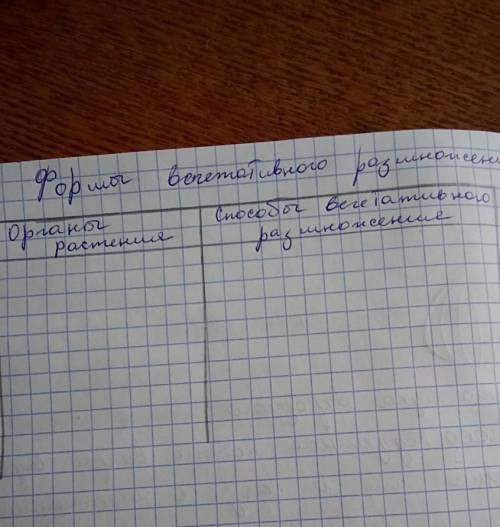 Формы вегетативного размножени
Органы
растения
Способы вегетативного
размножение